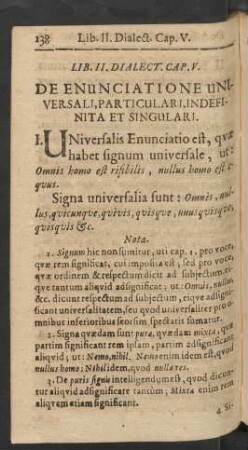 138 Lib. II. Dialect. Cap. V.
LIB. II. DIALECT. CAP. V.
DE ENUNCIATIONE UNI-
VERSALI, PARTICULARI, INDEFI-
NITA ET SINGULARI.
I. UNiversalis Enunciatio est, quæ
habet signum universale, ut:
Omnis homo est risibilis, nullus homo est e-
qvus.
Signa universalia sunt: Omnis, nul-
lus, qvicunqve, qvivis, qvisqve, unusqvisqve,
qvisqvis &c.
Nota.
1. Signum hic non sumitur, uti cap. 1. pro voce,
quæ rem significat, cui imposita est, sed pro voce,
quæ ordinem & respectum dicit ad subjectum,
qve tantum aliqvid adsignificat: ut: Omnis, nullus,
&c. dicunt respectum ad subjectum, eiqve adsignifi-
ficant universalitatem, seu qvod universaliter pro o-
mnibus inferioribus seorsim spectatis sumatur.
2. Signa qvædam sunt pura, qvædam mixta, qvæ
partim significant rem ipsam, partim adsignificant
aliqvid, ut: Nemo, nihil. Nemo enim idem est, qvod
nullus homo; Nihil idem, qvod nulla res.
3. De puris signis intelligendum est, qvod dicun-
tur aliqvid adsignificare tantum; Mixta enim rem
aliqvam etiam significant.
4. Si-